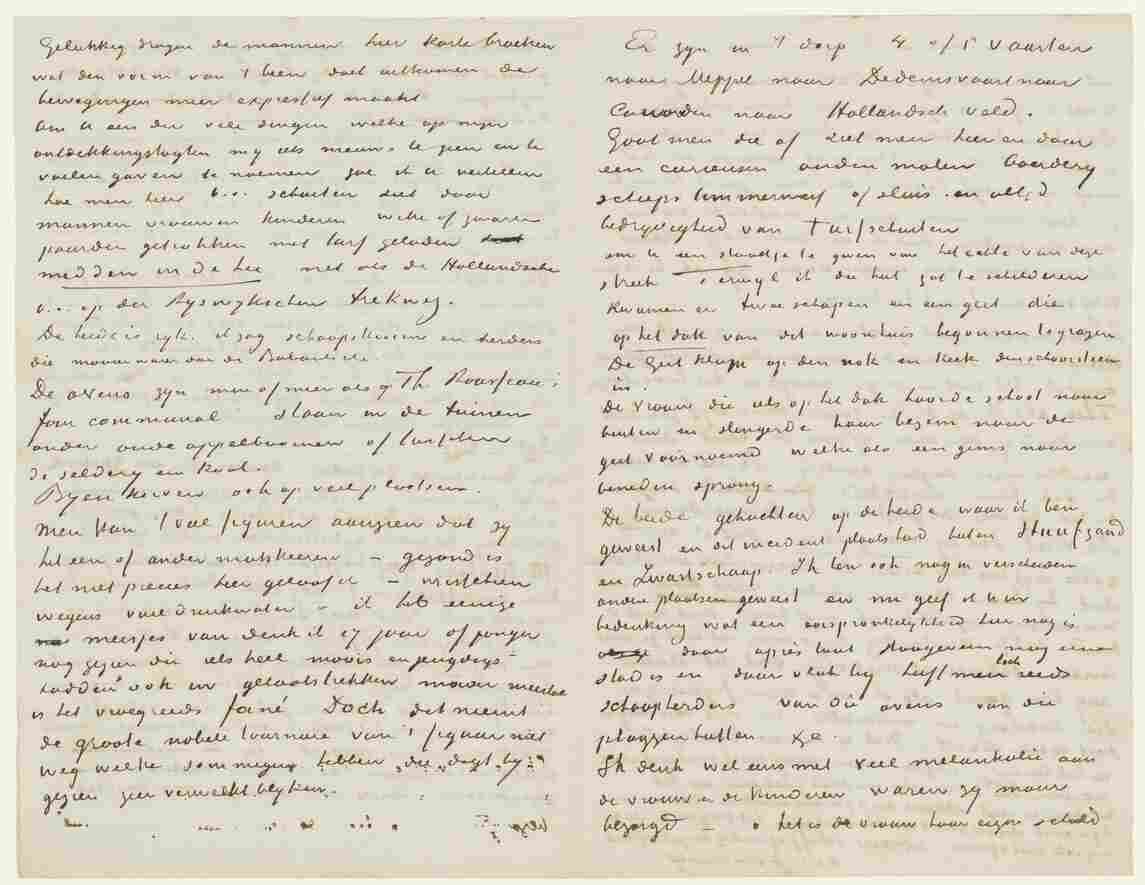 Gelukkig dragen de mannen hier korte broeken
wat den vorm van 't been doet uitkomen de
bewegingen meer expressief maakt
Om U een der vele dingen welke op mijn
ontdekkingstogten my iets nieuws te zien en te
voelen gaven te noemen zal ik U vertellen
hoe men hier b... schuiten ziet door
mannen vrouwen kinderen witte of zwarte
paarden getrokken met turf geladen
midden in de hei net als de Hollandsche
b... op den Ryswykschen trekweg.
De heide is ryk. ik zag schaapskooien en herders
die mooier waren dan de Brabantsche.
De ovens zyn min of meer als op Th. Rousseau's
four communal staan in de tuinen
onder oude appelboomen of tusschen
de seldery en kool.
Byen korven ook op veel plaatsen.
Men kan 't veel figuren aanzien dat zy
het een of ander mankeeren – gezond is
het niet precies hier geloof ik – misschien
wegens vuil drinkwater – ik heb eenige
meisjes van denk ik 17 jaar of jonger
nog gezien die iets heel moois en jeugdigs
hadden ook in gelaatstrekken maar meestal
is het vroeg reeds fané Doch dat neemt
de groote nobele tournure van 't figuur niet
weg welke sommigen hebben die digt by
gezien zeer verwelkt blyken.
Er zyn in 't dorp 4 of 5 vaarten
naar Meppel naar Dedemsvaart naar
Coevorden naar Hollandsch veld.
Gaat men die af ziet men hier en daar
een curieusen ouden molen boerdery
scheeps timmerwerf of sluis. en altijd
bedryvigheid van turfschuiten
om U een staaltje te geven van het echte van deze
streek terwyl ik die hut zat te schilderen
kwamen er twee schapen en een geit die
op het dak van dit woonhuis begonnen te grazen
De Geit klom op den nok en keek den schoorsteen
in.
De vrouw die iets op het dak hoorde schoot naar
buiten en slingerde haar bezem naar de
geit voornoemd welke als een gems naar
beneden sprong.
De beide gehuchten op de heide waar ik ben
geweest en dit incident plaats had heten Stuifzand
en Zwartschaap. Ik ben ook nog in verscheiden
andere plaatsen geweest en nu geef ik U in
bedenking wat een oorspronkelykheid hier nog is
daar après tout Hoogeveen nog eene
stad is en daar vlak by heeft men toch reeds
schaapherders van die ovens van die
plaggenhutten &c.
Ik denk wel eens met veel melankolie aan
de vrouw en de kinderen waren zy maar
bezorgd – o het is de vrouw haar eigen schuld